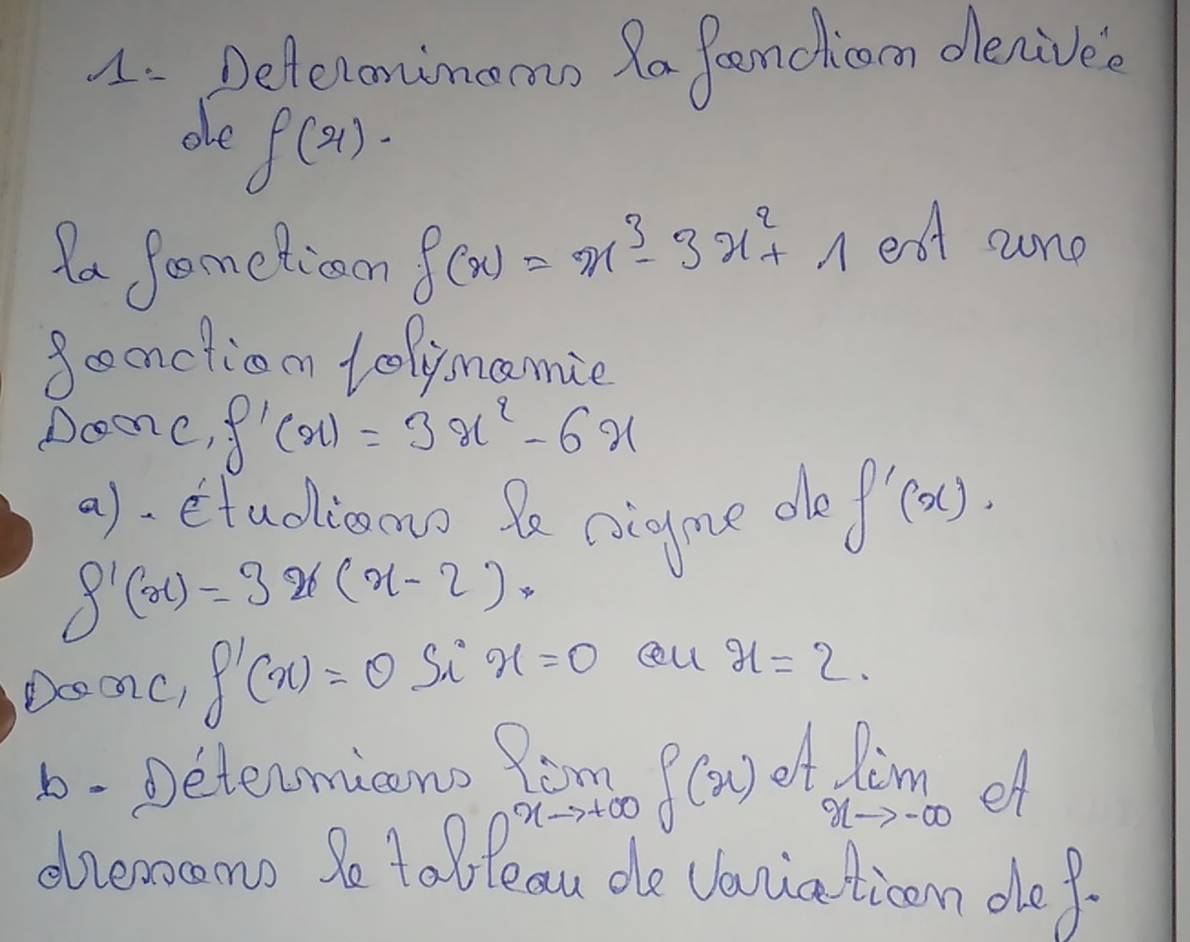 1- Determinons la fonction derivée
de f(x).
la fonction f(x) = x³ - 3x² + 1 est une
fonction polynomie
Donc, f'(x) = 3x² - 6x
a) - Étudions le signe de f'(x).
f'(x) = 3x(x - 2).
Donc, f'(x) = 0 Si x = 0 ou x = 2.
b - Détermions lim x→+∞ f(x) et lim x→-∞ et
dressons le tableau de variation de f.